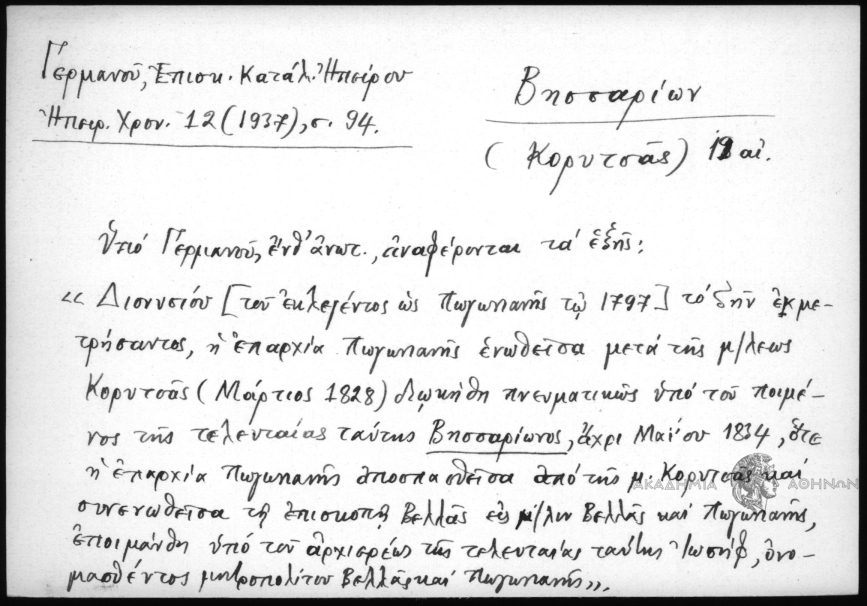 Γερμανοῦ, Ἐπισκ. Κατάλ. Ἠπείρου
Ἠπειρ. Χρον. 12 (1937), σ. 94.
Βησσαρίων
(Κορυτσᾶς) 19 αἰ.
Ὑπό Γερμανοῦ, ἔνθ' ἀνωτ., ἀναφέρονται τά ἑξῆς:
«Διονυσίου [τοῦ ἐκλεγέντος ὡς Πωγωνιανῆς τῷ 1797] τό ζῆν ἐκμε-
τρήσαντος, ἡ ἐπαρχία Πωγωνιανῆς ἑνωθεῖσα μετά τῆς μ/λεως
Κορυτσᾶς (Μάρτιος 1828) διῳκήθη πνευματικῶς ὑπό τοῦ ποιμέ-
νος τῆς τελευταίας ταύτης Βησσαρίωνος, ἄχρι Μαΐου 1834, ὅτε
ἡ ἐπαρχία Πωγωνιανῆς ἀποσπασθεῖσα ἀπό τῆς μ. Κορυτσᾶς καί
συνενωθεῖσα τῇ ἐπισκοπῇ Βελλᾶς εἰς μ/λιν Βελλᾶς καί Πωγωνιανῆς,
ἐποιμάνθη ὑπό τοῦ ἀρχιερέως τῆς τελευταίας ταύτης Ἰωσήφ, ὀνο-
μασθέντος μητροπολίτου Βελλᾶς καί Πωγωνιανῆς».
ΑΚΑΔΗΜΙΑ ΑΘΗΝΩΝ